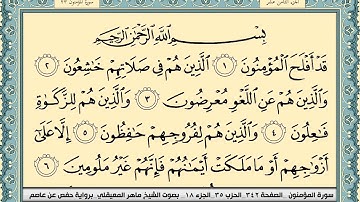 الجزء الثامن عشر
سورة المؤمنون ٢٣
بِسْمِ ٱللَّهِ ٱلرَّحْمَٰنِ ٱلرَّحِيمِ
قَدْ أَفْلَحَ ٱلْمُؤْمِنُونَ ١ ٱلَّذِينَ هُمْ فِي صَلَاتِهِمْ خَٰشِعُونَ ٢
وَٱلَّذِينَ هُمْ عَنِ ٱللَّغْوِ مُعْرِضُونَ ٣ وَٱلَّذِينَ هُمْ لِلزَّكَوٰةِ
فَٰعِلُونَ ٤ وَٱلَّذِينَ هُمْ لِفُرُوجِهِمْ حَٰفِظُونَ ٥ إِلَّا عَلَىٰٓ
أَزْوَٰجِهِمْ أَوْ مَا مَلَكَتْ أَيْمَٰنُهُمْ فَإِنَّهُمْ غَيْرُ مَلُومِينَ ٦
سورة المؤمنون الصفحة ٣٤٢ الحزب ٣٥ الجزء ١٨ بصوت الشيخ ماهر المعيقلي برواية حفص عن عاصم